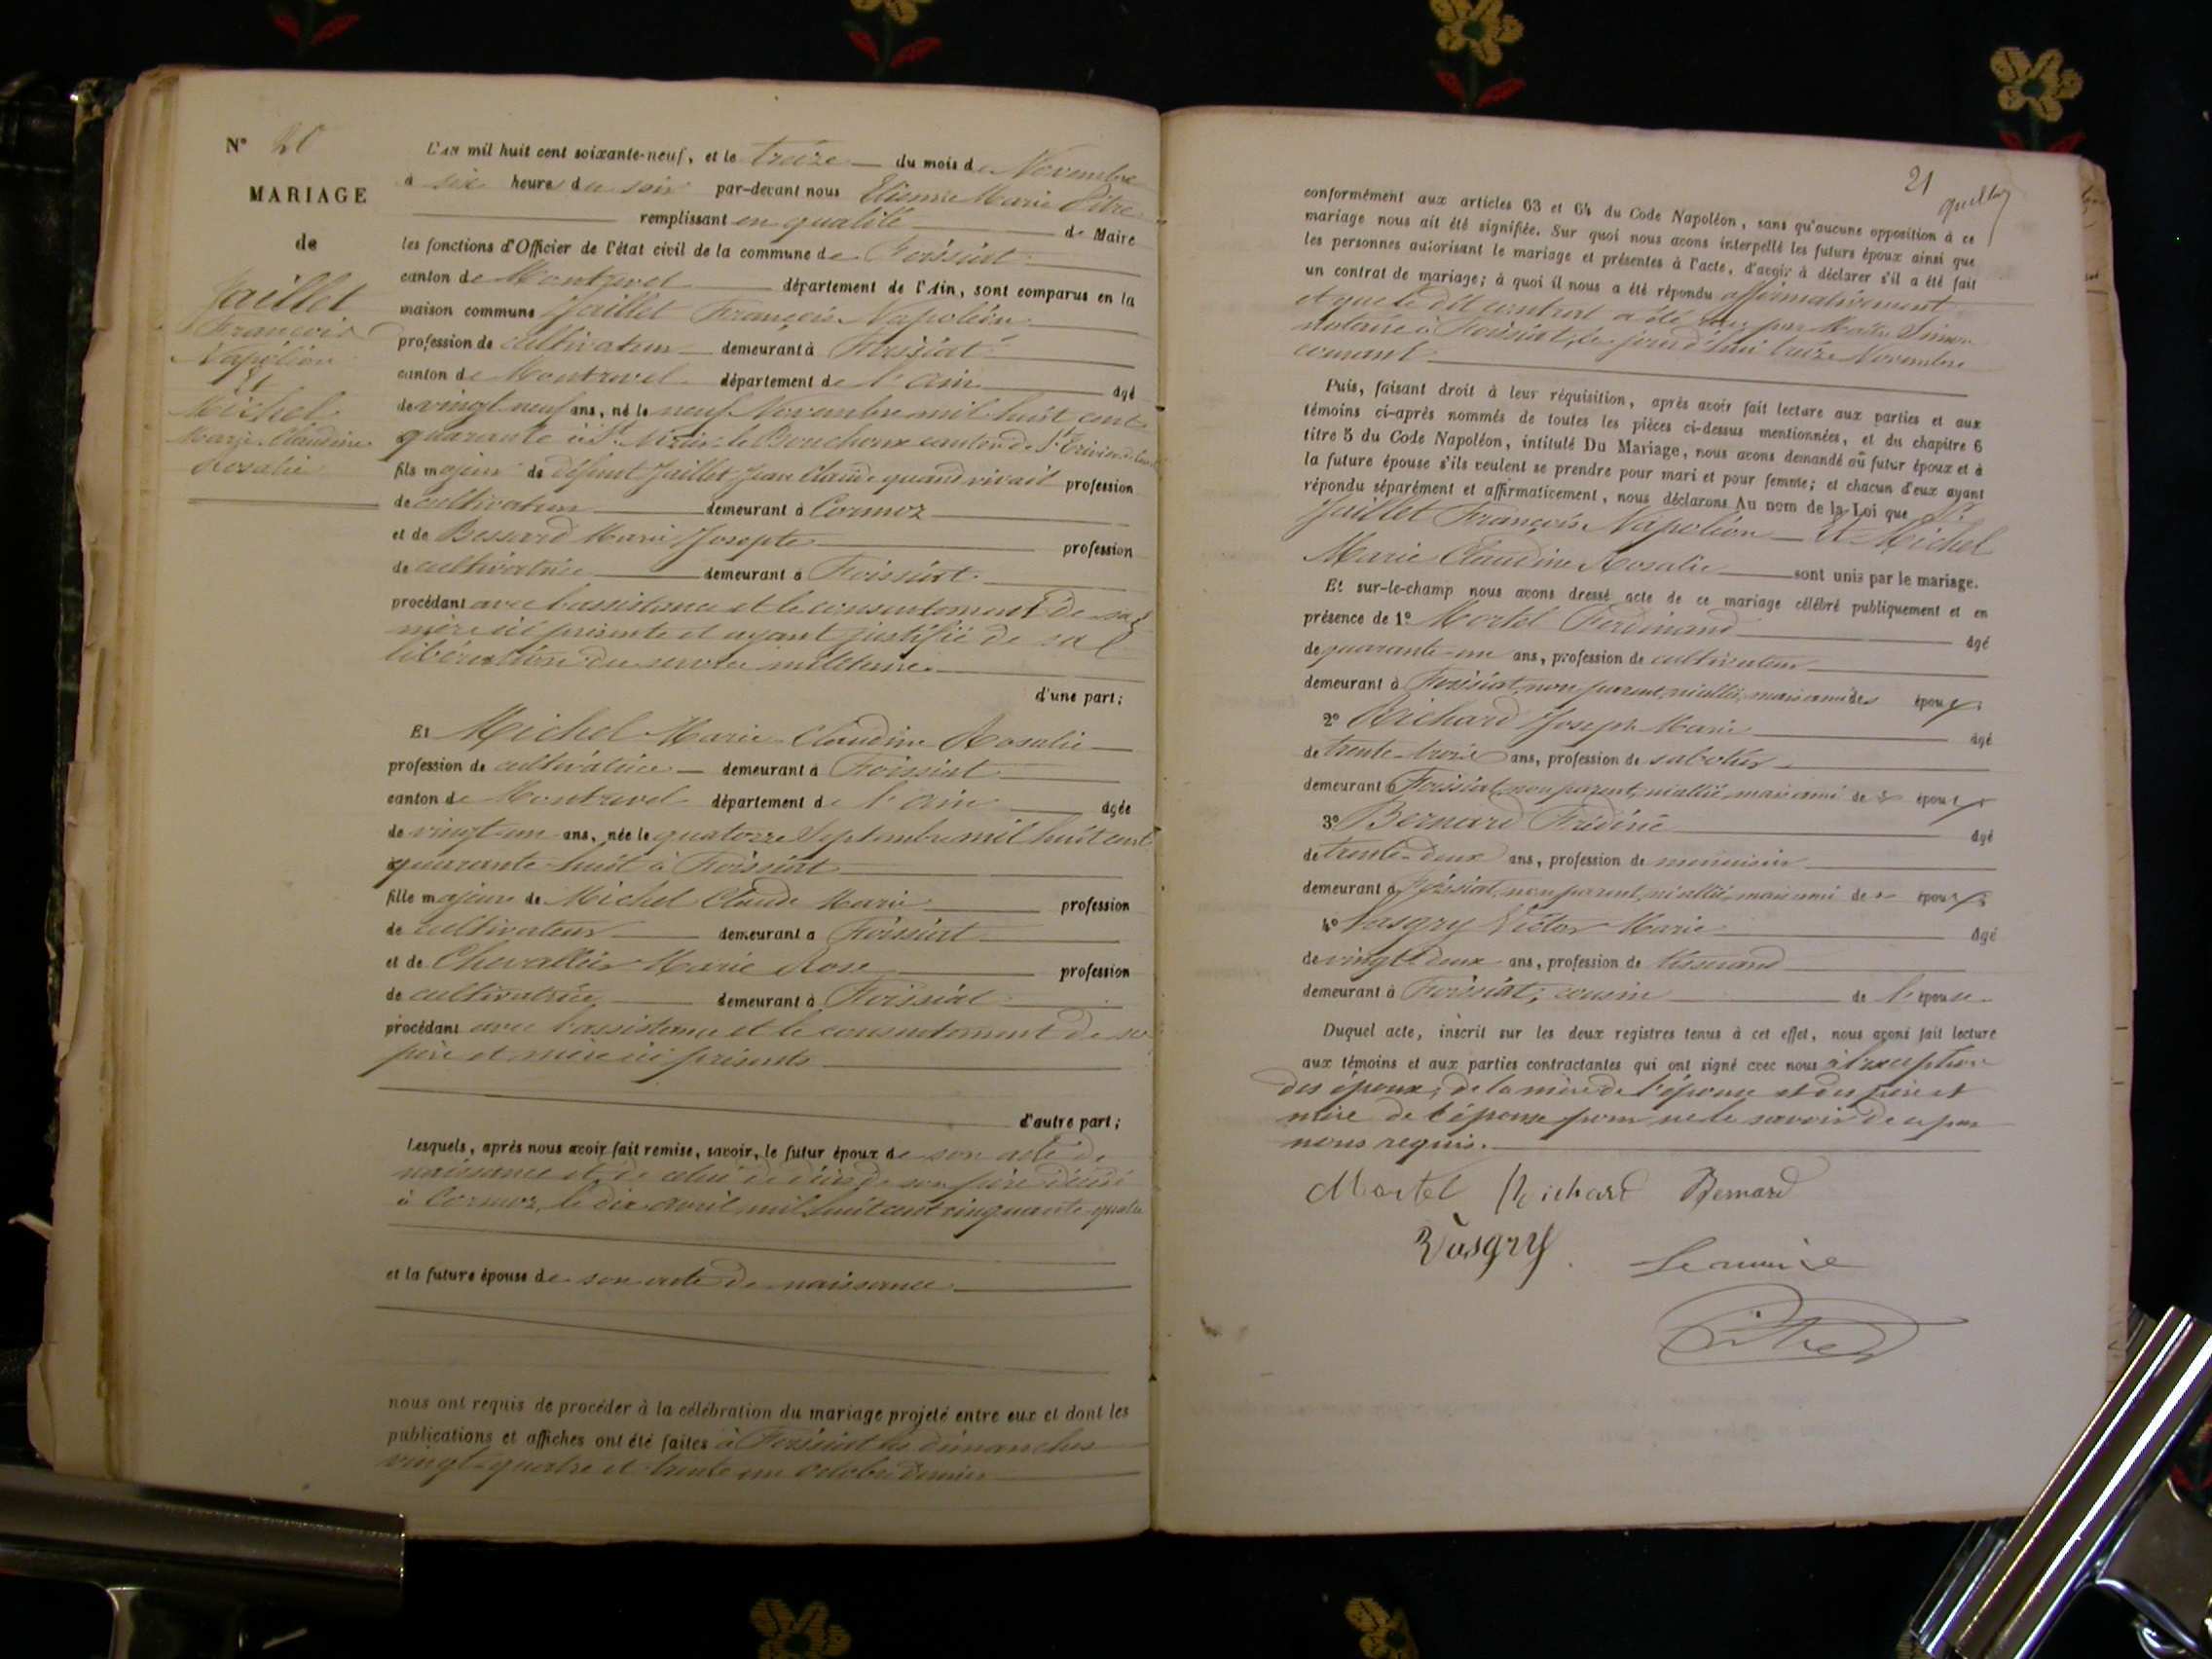 N° 20
MARIAGE
de
Jaillet
François
Napoléon
Et
Michel
Marie Claudine
Rosalie
L'an mil huit cent soixante-neuf, et le treize du mois de Novembre
à six heure du soir par-devant nous Etienne Marie Pitre
remplissant en qualité de Maire
les fonctions d'Officier de l'état civil de la commune de Foissiat
canton de Montrevel département de l'Ain, sont comparus en la
maison commune Jaillet François Napoléon
profession de cultivateur demeurant à Foissiat
canton de Montrevel département de l'ain âgé
de vingt neuf ans, né le neuf Novembre mil huit cent
quarante à St. le Bouchoux canton de St
fils majeur de défunt Jaillet Jean Claude quand vivait profession
de cultivateur demeurant à Cormoz
et de Bessard Marie Josepte profession
de cultivatrice demeurant à Foissiat
procédant avec l'assistance et le consentement de sa
mère ici présente et ayant justifié de sa
libération du service militaire
d'une part;
Et Michel Marie Claudine Rosalie
profession de cultivatrice demeurant à Foissiat
canton de Montrevel département de l'ain âgée
de vingt-un ans, née le quatorze Septembre mil huit cent
quarante-huit à Foissiat
fille majeure de Michel Claude Marie profession
de cultivateur demeurant à Foissiat
et de Chevallier Marie Rose profession
de cultivatrice demeurant à Foissiat
procédant avec l'assistance et le consentement de ses
père et mère ici présents
d'autre part;
Lesquels, après nous avoir fait remise, savoir, le futur époux de son acte de
naissance et de celui de décès de son père décédé
à Cormoz, le dix avril mil huit cent cinquante-quatre
et la future épouse de son acte de naissance
nous ont requis de procéder à la célébration du mariage projeté entre eux et dont les
publications et affiches ont été faites à Foissiat les dimanches
vingt-quatre et trente un octobre dernier
21
conformément aux articles 63 et 64 du Code Napoléon, sans qu'aucune opposition à ce
mariage nous ait été signifiée. Sur quoi nous avons interpellé les futurs époux ainsi que
les personnes autorisant le mariage et présentes à l'acte, d'avoir à déclarer s'il a été fait
un contrat de mariage; à quoi il nous a été répondu affirmativement
et que le dit contrat a été reçu par Maître Simon
notaire à Foissiat, le jourd'hui treize Novembre
courant
Puis, faisant droit à leur réquisition, après avoir fait lecture aux parties et aux
témoins ci-après nommés de toutes les pièces ci-dessus mentionnées, et du chapitre 6
titre 5 du Code Napoléon, intitulé Du Mariage, nous avons demandé au futur époux et à
la future épouse s'ils veulent se prendre pour mari et pour femme; et chacun d'eux ayant
répondu séparément et affirmativement, nous déclarons Au nom de la Loi que
Jaillet François Napoléon Et Michel
Marie Claudine Rosalie sont unis par le mariage.
Et sur-le-champ nous avons dressé acte de ce mariage célébré publiquement et en
présence de 1° Mortel Ferdinand âgé
de quarante-un ans, profession de cultivateur
demeurant à Foissiat, non parent, ni allié, mais ami des époux
2° Richard Joseph Marie âgé
de trente-trois ans, profession de sabotier
demeurant à Foissiat, non parent, ni allié, mais ami des époux
3° Bernard Frédéric âgé
de trente-deux ans, profession de menuisier
demeurant à Foissiat, non parent, ni allié, mais ami des époux
4° Vasgry Victor Marie âgé
de vingt-deux ans, profession de tisserand
demeurant à Foissiat, cousin de l'épouse
Duquel acte, inscrit sur les deux registres tenus à cet effet, nous avons fait lecture
aux témoins et aux parties contractantes qui ont signé avec nous à l'exception
des époux, de la mère de l'époux et des père et
mère de l'épouse pour ne le savoir de ce par
nous requis.
Mortel Richard Bernard
Vasgry Le maire
Pitre